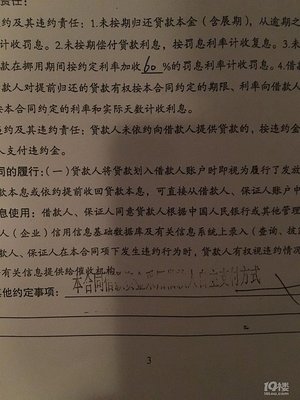 责任：
约及其违约责任：1.未按期归还贷款本金（含展期），从逾期之
计收罚息。2.未按期偿付贷款利息，按罚息利率计收复息。3.
款在挪用期间按约定利率加收60%的罚息利率计收罚息。4.借
款人对提前归还的贷款有权按本合同约定的期限、利率向借款
按本合同约定的利率和实际天数计收利息。
违约及其违约责任：贷款人未依约向借款人提供贷款的，按违约金
人支付违约金。
同的履行：（一）贷款人将贷款划入借款人账户时即视为履行了发放
款本息或依约提前收回贷款本息，可直接从借款人、保证人账户中
息使用：借款人、保证人同意贷款人根据中国人民银行或其他管理
人（企业）信用信息基础数据库及有关信息系统上录入（查询、披
人、保证人在本合同项下发生违约行为时，贷款人有权视违约情况
有关信息提供给催收机构。
其他约定事项：本合同借款资金采用借款人自主支付方式
3
19楼